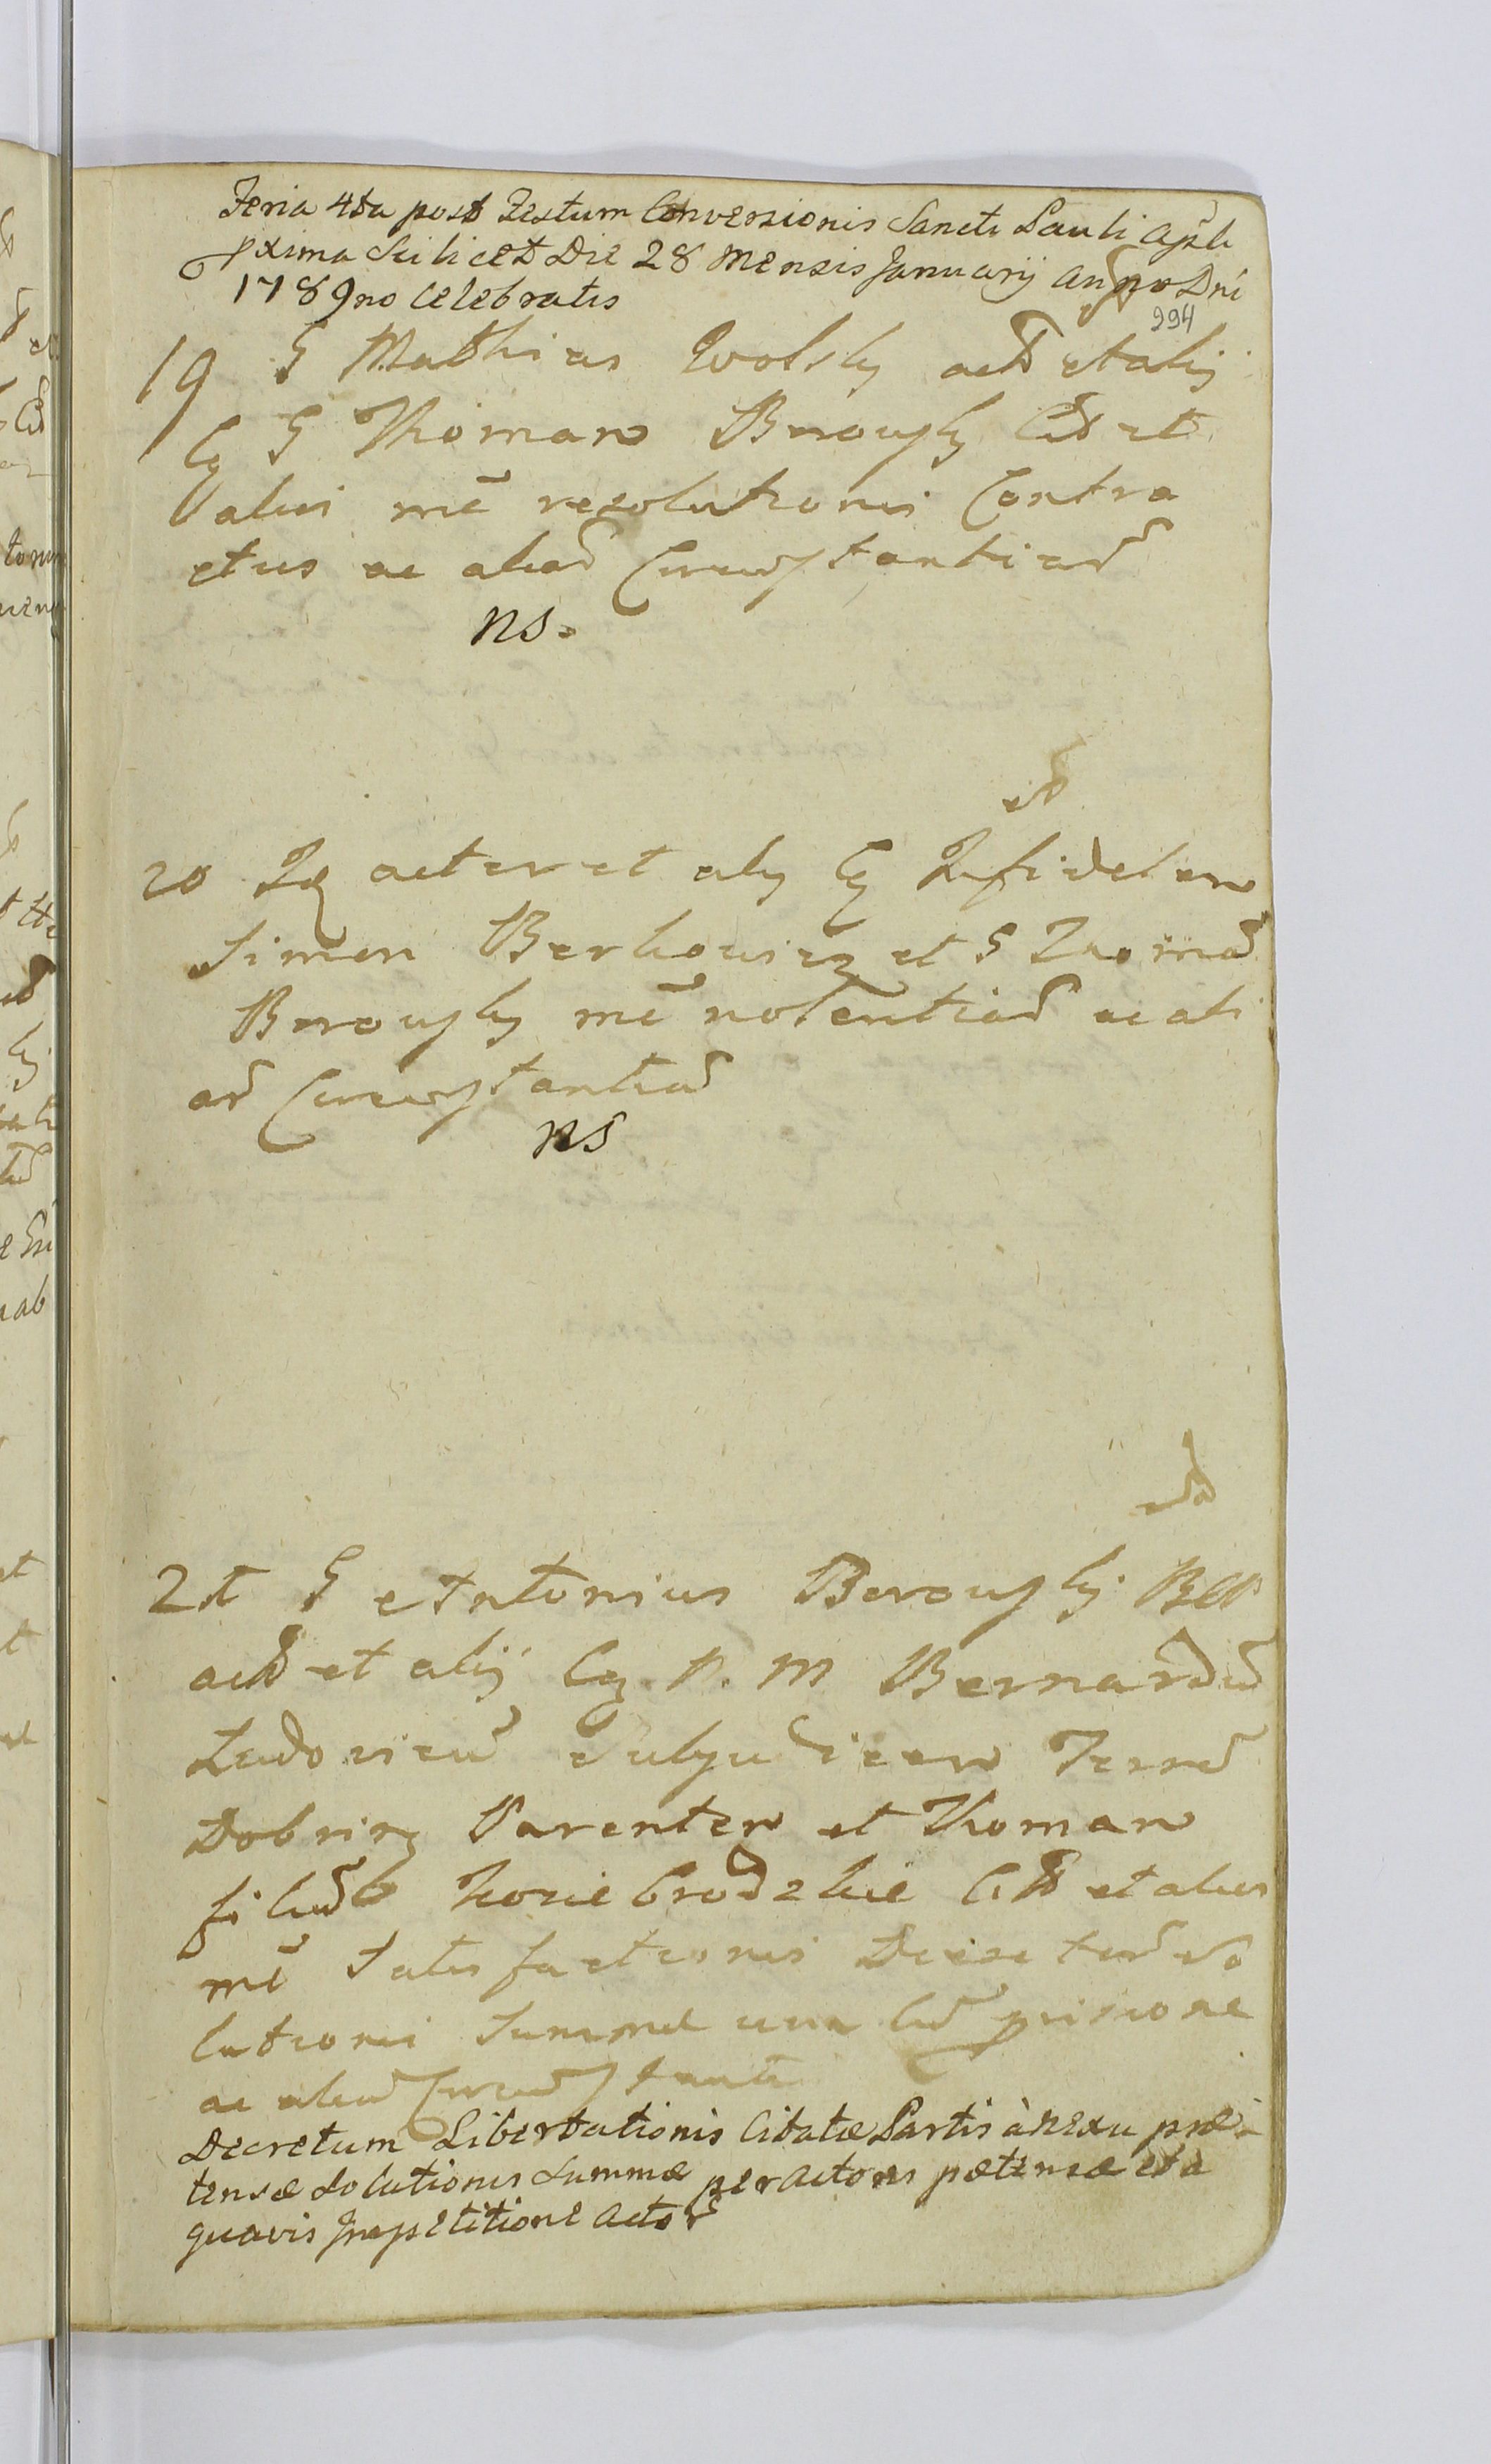 Feria 4ta post Festum Conversionis Sancti Pauli Apli
pxima Scilicet Die 28 Mensis Januarij Anno Dni
1789no Celebratis
294
19 G Mathias Wolsky act et alij
Cq G Thomam Borowsky Cit et
alios me resolutionis Contra
ctus ac aliar Circumstantiar
ns.
id
20 Iq actor et alij Cq Infidelem
Simon Berkowicz et G Thoma
Borowsky me violentiar ac ali
ar Circumstantiar
ns
id
21 G Antonius Borowsky
act et alij Cq P. M Bernardu
Ludovicu Subjudicem Terre
Dobrin Parentem et Thomam
filiu Cit et alios
me Satisfactionis Decreto so
lutionis Summe una cu
ac aliar Circumstanti
Decretum Libertationis Citatæ Partis à nexu præ
tensæ Solutionis Summæ per Actores ptensæ et a
quavis Impetitione Actor